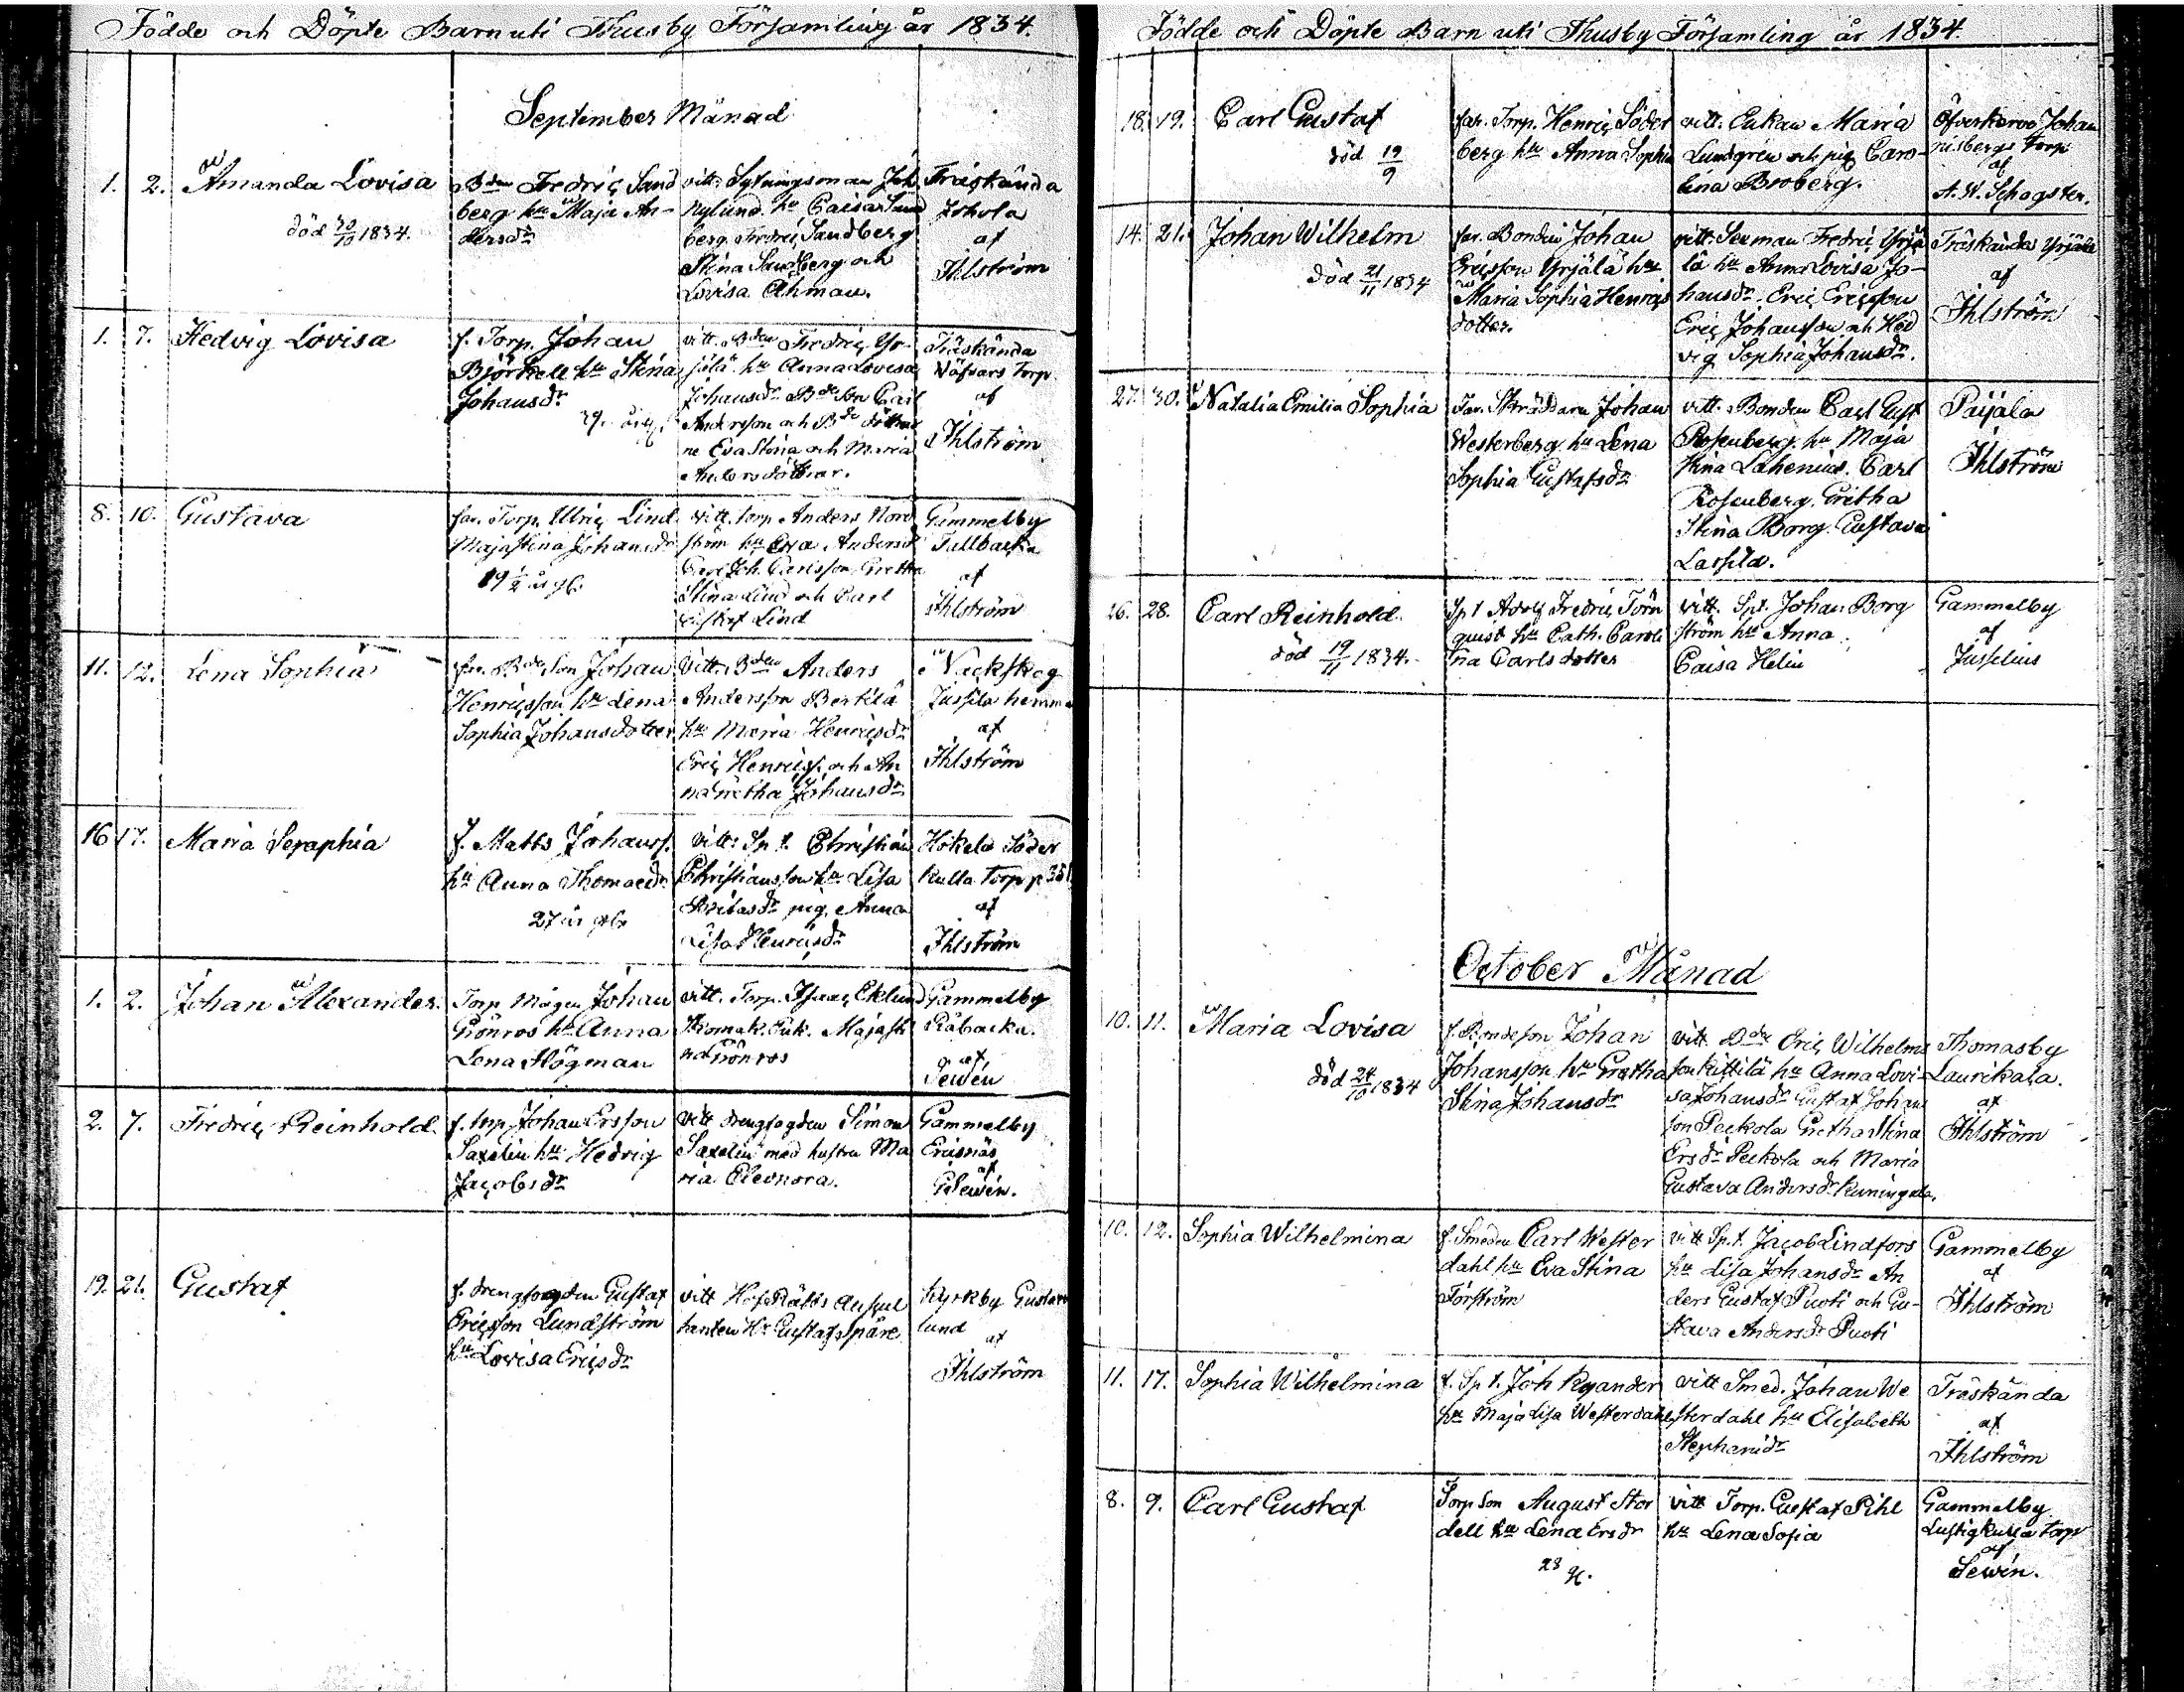 Födde och Döpte Barn uti Thusby Församling år 1834.
September Månad
1. 2. Amanda Lovisa
död 20/10 1834.
Bden Fredric Sand
berg hu Maja An-
dersdr
vitt. Sytningsman Joh
Nylund. hu Caisa Sand
berg. Fredric Sandberg
Stina Sandberg och
Lovisa Åhman.
Träskända
Johola
af
Ihlström
1. 7. Hedvig Lovisa
f. Torp. Johan
Björkell hu Stina
Johansdr
39. årig.
vitt. Bden Fredric Yr-
jälä hu Anna Lovisa
Johansdr Bde Son Carl
Andersson och Bde döttrar
ne Eva Stina och Maria
Andersdöttrar.
Träskända
Väfvars Torp
af
Ihlström
8. 10. Gustava
far. Torp. Ulric Lind
Maja Stina Johansdr
19 1/2 år gl.
vitt. torp Anders Nord
ström hu Eva Andersd
Carl Joh. Carlsson. Gretha
Stina Lind och Carl
Gustaf Lind
Gammelby
Tallbacka
af
Ihlström
11. 12. Lena Sophia
far. Bde Son Johan
Henricsson hu Lena
Sophia Johansdotter
Vitt. Bden Anders
Andersson Bertilä
hu Maria Henricsdr
Eric Henrics. och An
na Gretha Johansdr
Nackskog
Jussila hemma
af
Ihlström
16 17. Maria Seraphia
f. Matts Johanss.
hu Anna Thomaedr
27 år gl.
vitt: Sp. t. Christian
Christiansson hu Lisa
pig. Anna
Lisa Henricsdr
Hokela Söder
kulla torp
af
Ihlström
1. 2. Johan Alexander.
Torp Mågen Johan
Grönros hu Anna
Lena Högman
vitt. Torp. Isaac Eklund
Skomak. Enk. Maja Sti
na Grönros
Gammelby
Råbacka.
af
Sewén
2. 7. Fredric Reinhold.
f. torp Johan Ersson
Saxelin hu Hedvig
Jacobsdr
vitt drengfogden Simon
Saxelin med hustru Ma
ria Eleonora.
Gammelby
Ericsnäs
af
Sewén.
19. 21. Gustaf
f. drengfogden Gustaf
Ericsson Lundström
hu Lovisa Ericsdr
vitt Hof Rätts Auscul
tanten Hr Gustaf Späre
Kyrkby Gustavs
lund
af
Ihlström
Födde och Döpte Barn uti Thusby Församling år 1834
18. 19. Carl Gustaf
död 19/9
far. Torp. Henric Söder
berg hu Anna Sophia
vitt. Enkan Maria
Lundgren och pig. Caro-
lina Broberg.
Öfverkervo Johan
nisbergs Torp
af
A. W. Schogster.
14. 21. Johan Wilhelm
död 21/11 1834
far. Bonden Johan
Ericsson Yrjälä hu
Maria Sophia Henrics
dotter.
vitt. Sexman Fredric Yrjä
lä hu Anna Lovisa Jo-
hansdr. Eric Ericsson
Eric Johansson och Hed
vig Sophia Johansdr.
Träskända Yrjälä
af
Ihlström
27. 30. Natalia Emilia Sophia
Far. Skräddarn Johan
Westerberg hu Lena
Sophia Gustafsdr
vitt. Bonden Carl Gust
Rosenberg. hu Maja
Stina Lahenius. Carl
Rosenberg. Gretha
Stina Borg. Gustava
Lassila.
Paijala
Ihlström
26. 28. Carl Reinhold.
död 19/11 1834.
Sp. t Adolf Fredric Törn
quist hu Cath. Caroli
na Carlsdotter
vitt. Sp. t. Johan Borg
ström hu Anna
Caisa Helin
Gammelby
af
Juselius
October Månad
10. 11. Maria Lovisa
död 24/10 1834
f. Bondeson Johan
Johansson hu Gretha
Stina Johansdr
vitt Bde Eric Wilhelms
son Kittilä hu Anna Lovi-
sa Johansdr Gustaf Johans
son Peckola Gretha Stina
Ersdr Peckola och Maria
Gustava Andersdr Kuningala.
Thomasby
Laurikala.
af
Ihlström
10. 12. Sophia Wilhelmina
f. Smeden Carl Wester
dahl hu Eva Stina
Forström
vitt Sp. t. Jacob Lindfors
hu Lisa Johansdr An
ders Gustaf Puoti och Gu-
stava Andersdr Puoti
Gammelby
af
Ihlström
11. 17. Sophia Wilhelmina
f. Sp t. Joh Ryander
hu Maja Lisa Westerdahl
vitt Smed. Johan We
sterdahl hu Elisabeth
Stephansdr
Träskända
af
Ihlström
8. 9. Carl Gustaf
Torp Son August Stor
dell hu Lena Ersdr
28 gl.
vitt Torp. Gustaf Pihl
hu Lena Sofia
Gammelby
Lustigkulla Torp
af
Sewén.